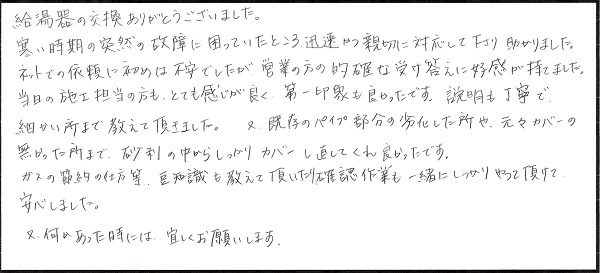 給湯器の交換ありがとうございました。
寒い時期の突然の故障に困っていたところ、迅速かつ親切に対応して下さり助かりました。
ネットでの依頼に初めは不安でしたが営業の方の的確な受け答えに好感が持てました。
当日の施工担当の方も、とても感じが良く、第一印象も良かったです。説明も丁寧で、
細かい所まで教えて頂きました。 又、既存のパイプ部分の劣化した所や、元々カバーの
無かった所まで、砂利の中からしっかりカバーし直してくれ良かったです。
ガスの節約の仕方等、豆知識も教えて頂いたり確認作業も一緒にしっかりやって頂けて
安心しました。
又、何かあった時には、宜しくお願いします。